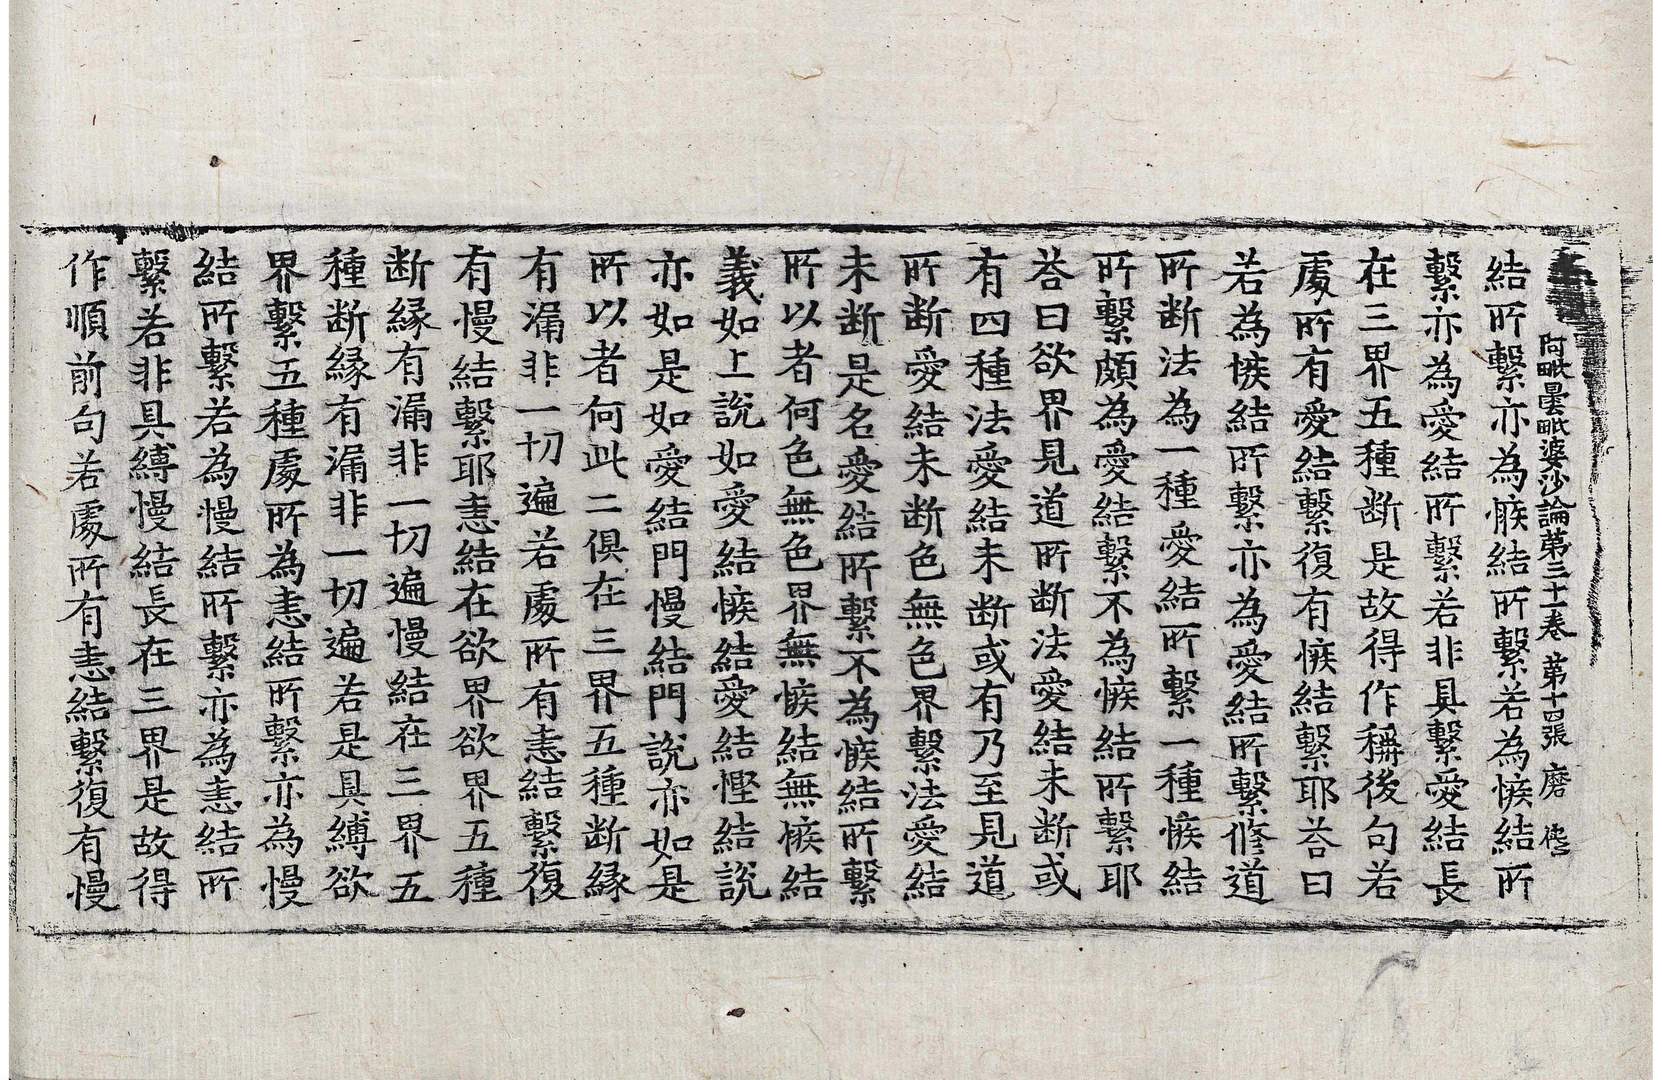 阿毗曇毗婆沙論第三十一卷 第十四張 磨
結所繫亦為㛋結所繫若為㛋結所
繫亦為愛結所繫若非具繫愛結長
在三界五種断是故得作稱後句若
處所有愛結繫復有㛋結繫耶荅曰
若為㛋結所繫亦為愛結所繫修道
所断法為一種愛結所繫一種㛋結
所繫頗為愛結繫不為㛋結所繫耶
荅曰欲界見道所断法愛結未断或
有四種法愛結未断或有乃至見道
所断愛結未断色無色界繫法愛結
未断是名愛結所繫不為㛋結所繫
所以者何色無色界無㛋結無㛋結
義如上說如愛結㛋結愛結慳結說
亦如是如愛結門慢結門說亦如是
所以者何此二俱在三界五種断緣
有漏非一切遍若處所有恚結繫復
有慢結繫耶恚結在欲界欲界五種
断緣有漏非一切遍慢結在三界五
種断緣有漏非一切遍若是具縛欲
界繫五種處所為恚結所繫亦為慢
結所繫若為慢結所繫亦為恚結所
繫若非具縛慢結長在三界是故得
作順前句若處所有恚結繫復有慢